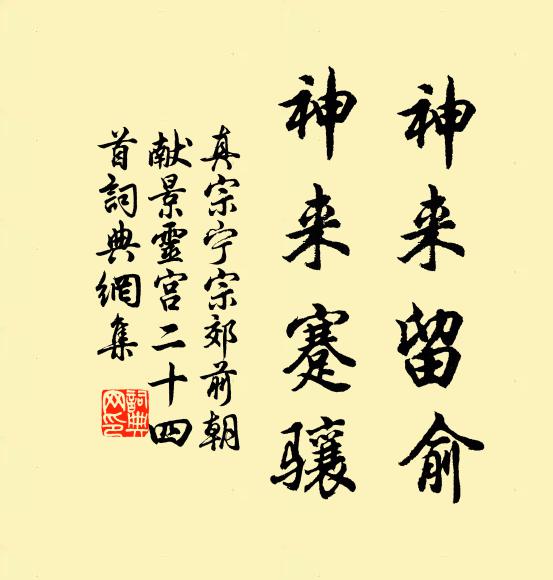 神来留俞
神来蹇骧
真宗宁宗郊前朝
献景靈宫二十四
首詞典網集
詞典
网印